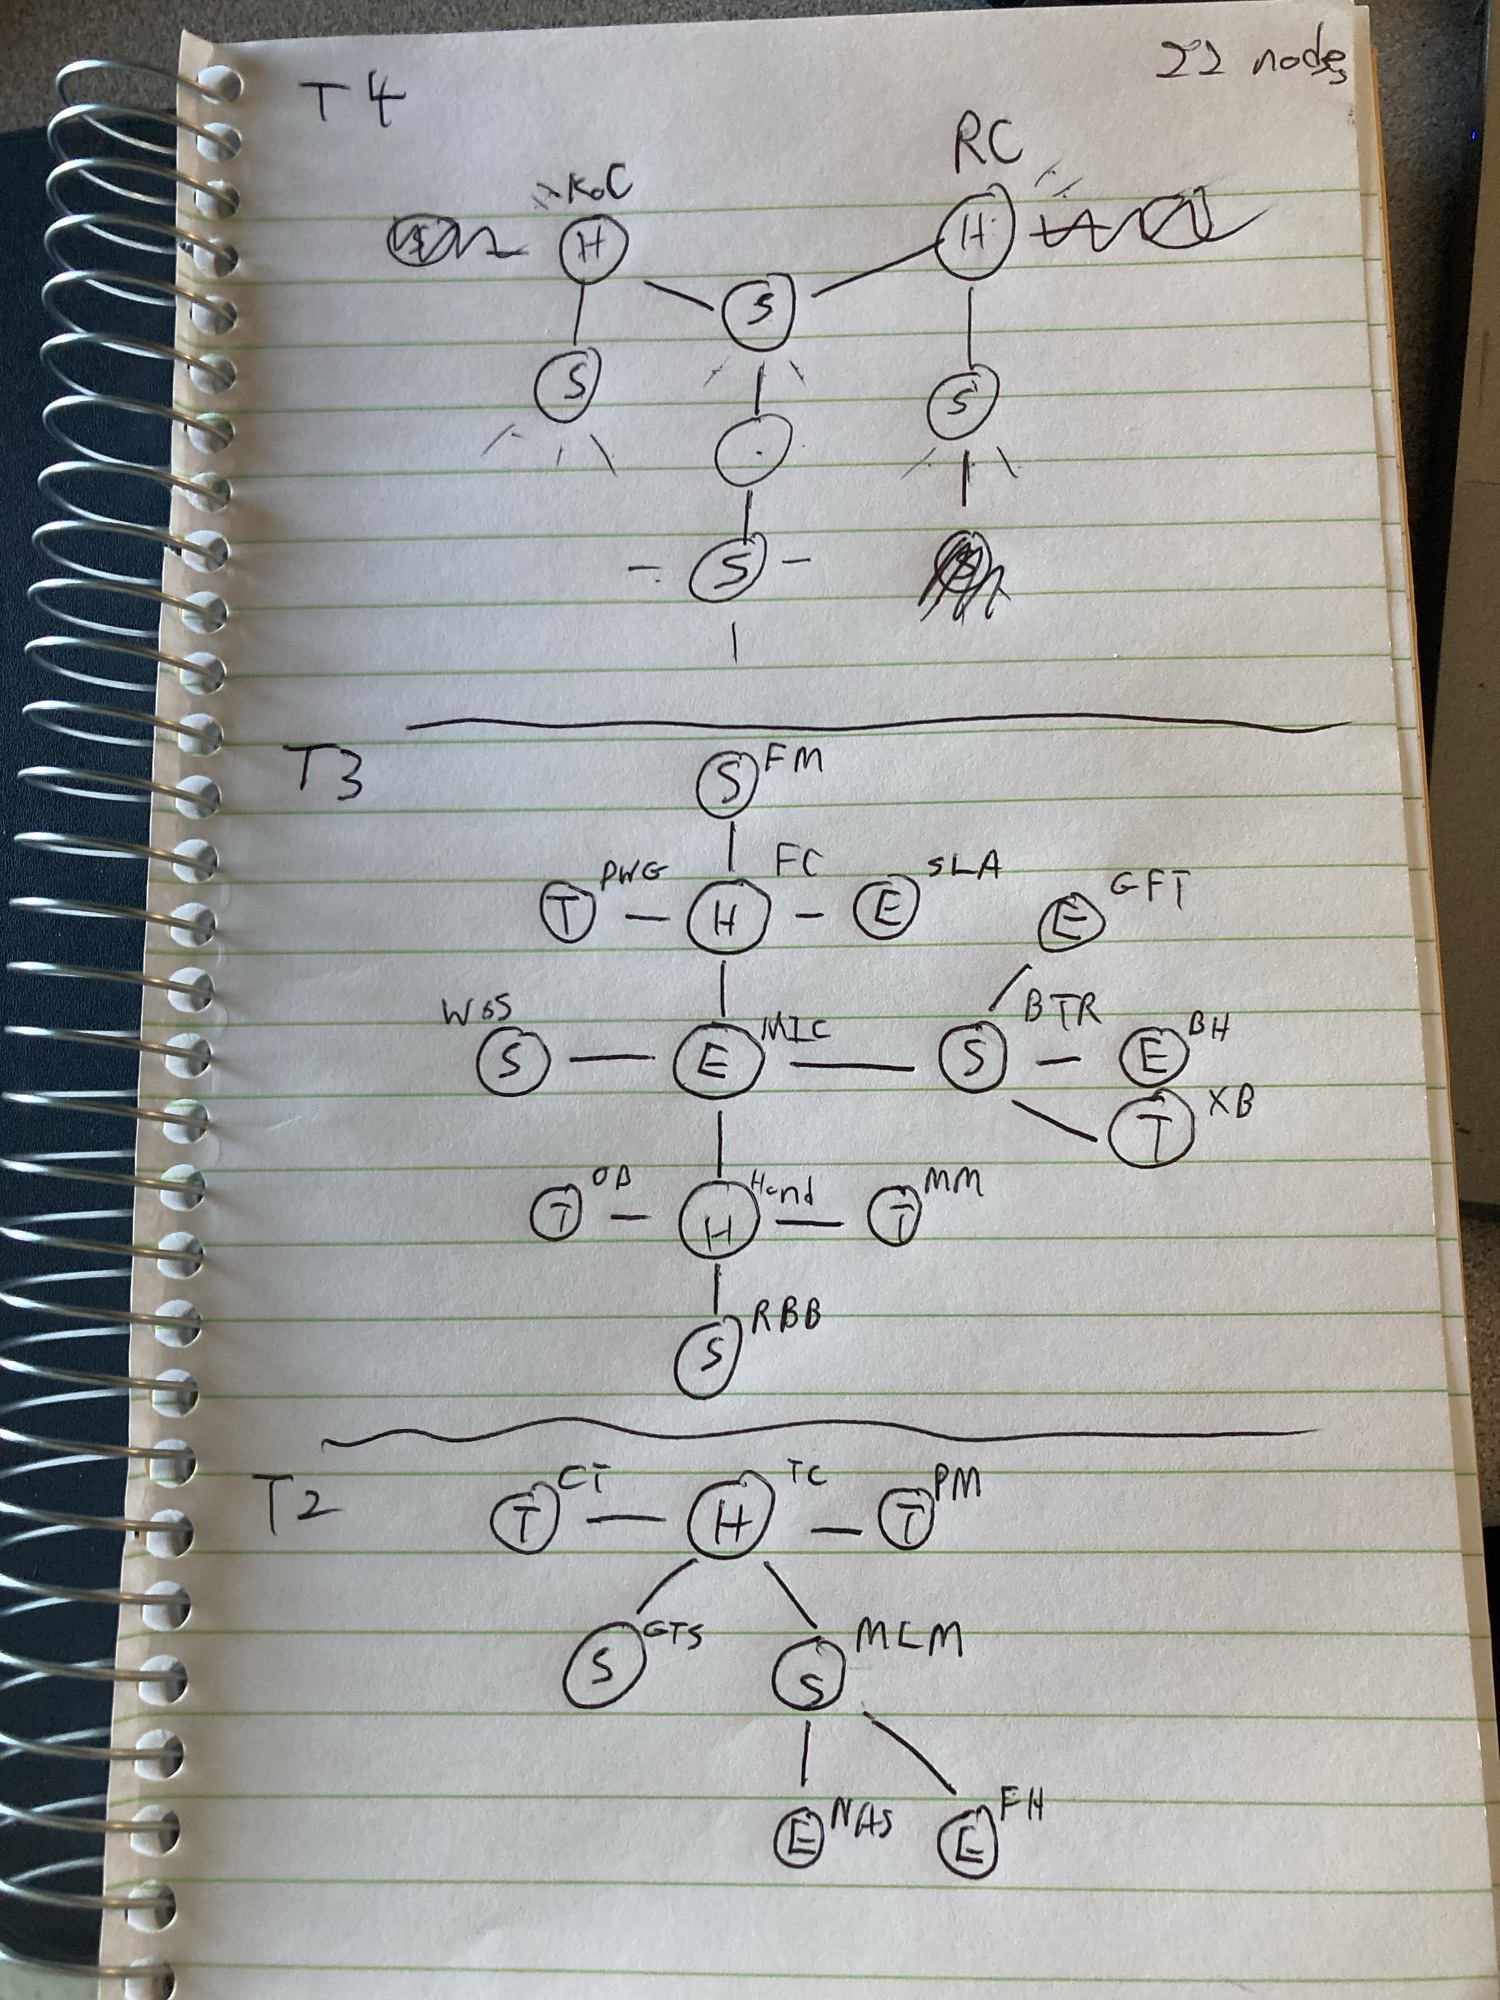 T4
22 nodes
KoC
RC
H
H
S
S
S
S
T3
S FM
PWG FC SLA
T H E
E GFT
W6S MIC BTR BH
S E S E
T XB
OD Hand MM
T H T
S RBB
T2
CT TC PM
T H T
S GTS
S MCM
E NAS
E FH